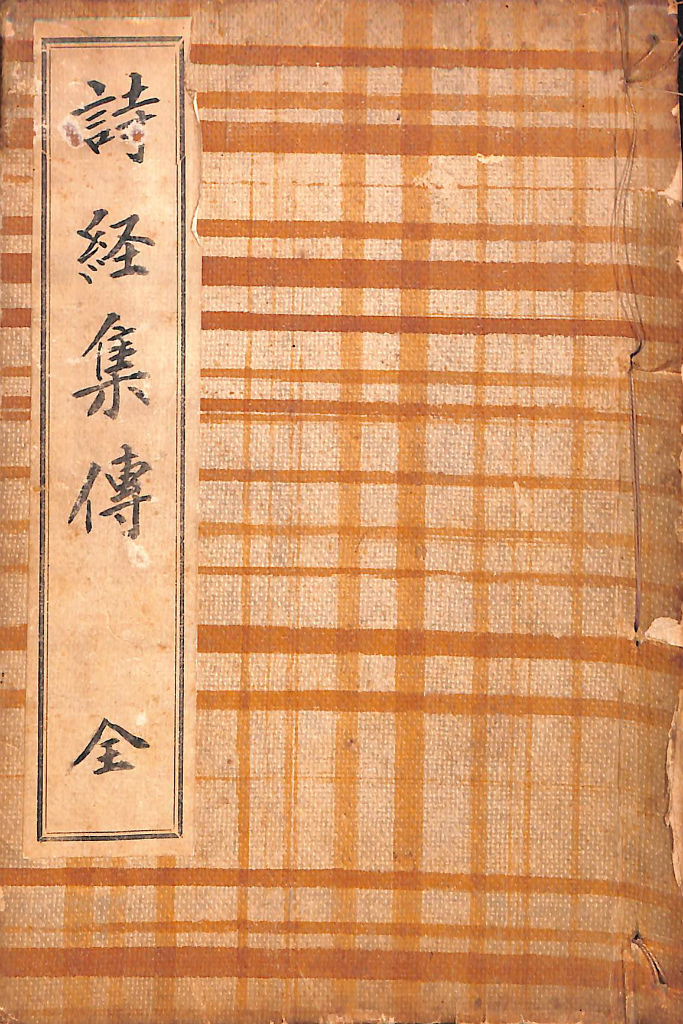 詩経集傳 全